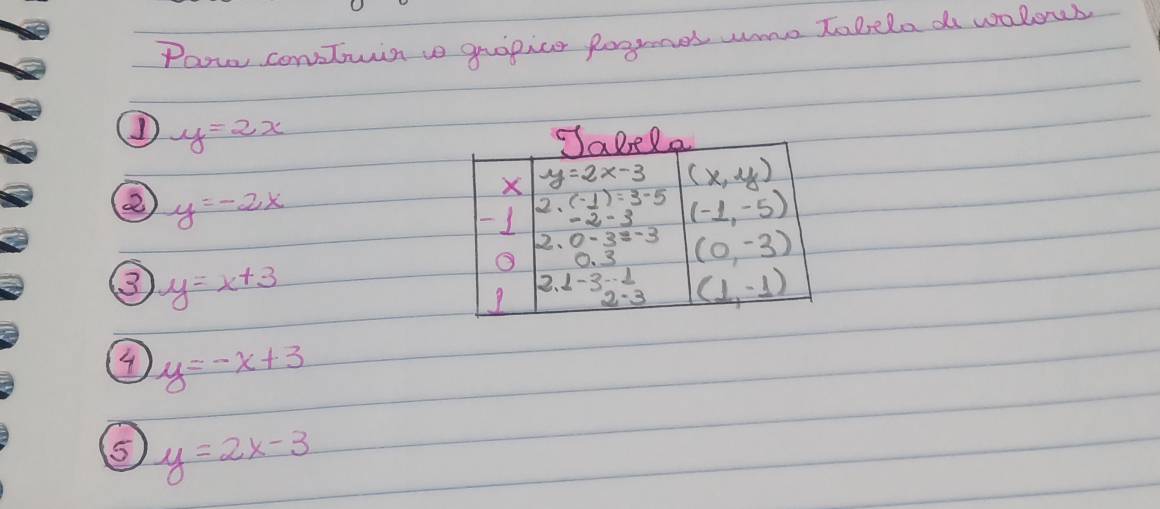 Para construir o gráfico fazemos uma Tabela de valores
① y=2x
② y=-2x
③ y=x+3
④ y=-x+3
⑤ y=2x-3
Tabela
x y=2x-3 (x,y)
-1 2.(-1)=3-5 (-1,-5)
-2-3
0 2.0-3=-3 (0,-3)
0.3
1 2.1-3--1 (1,-1)
2-3